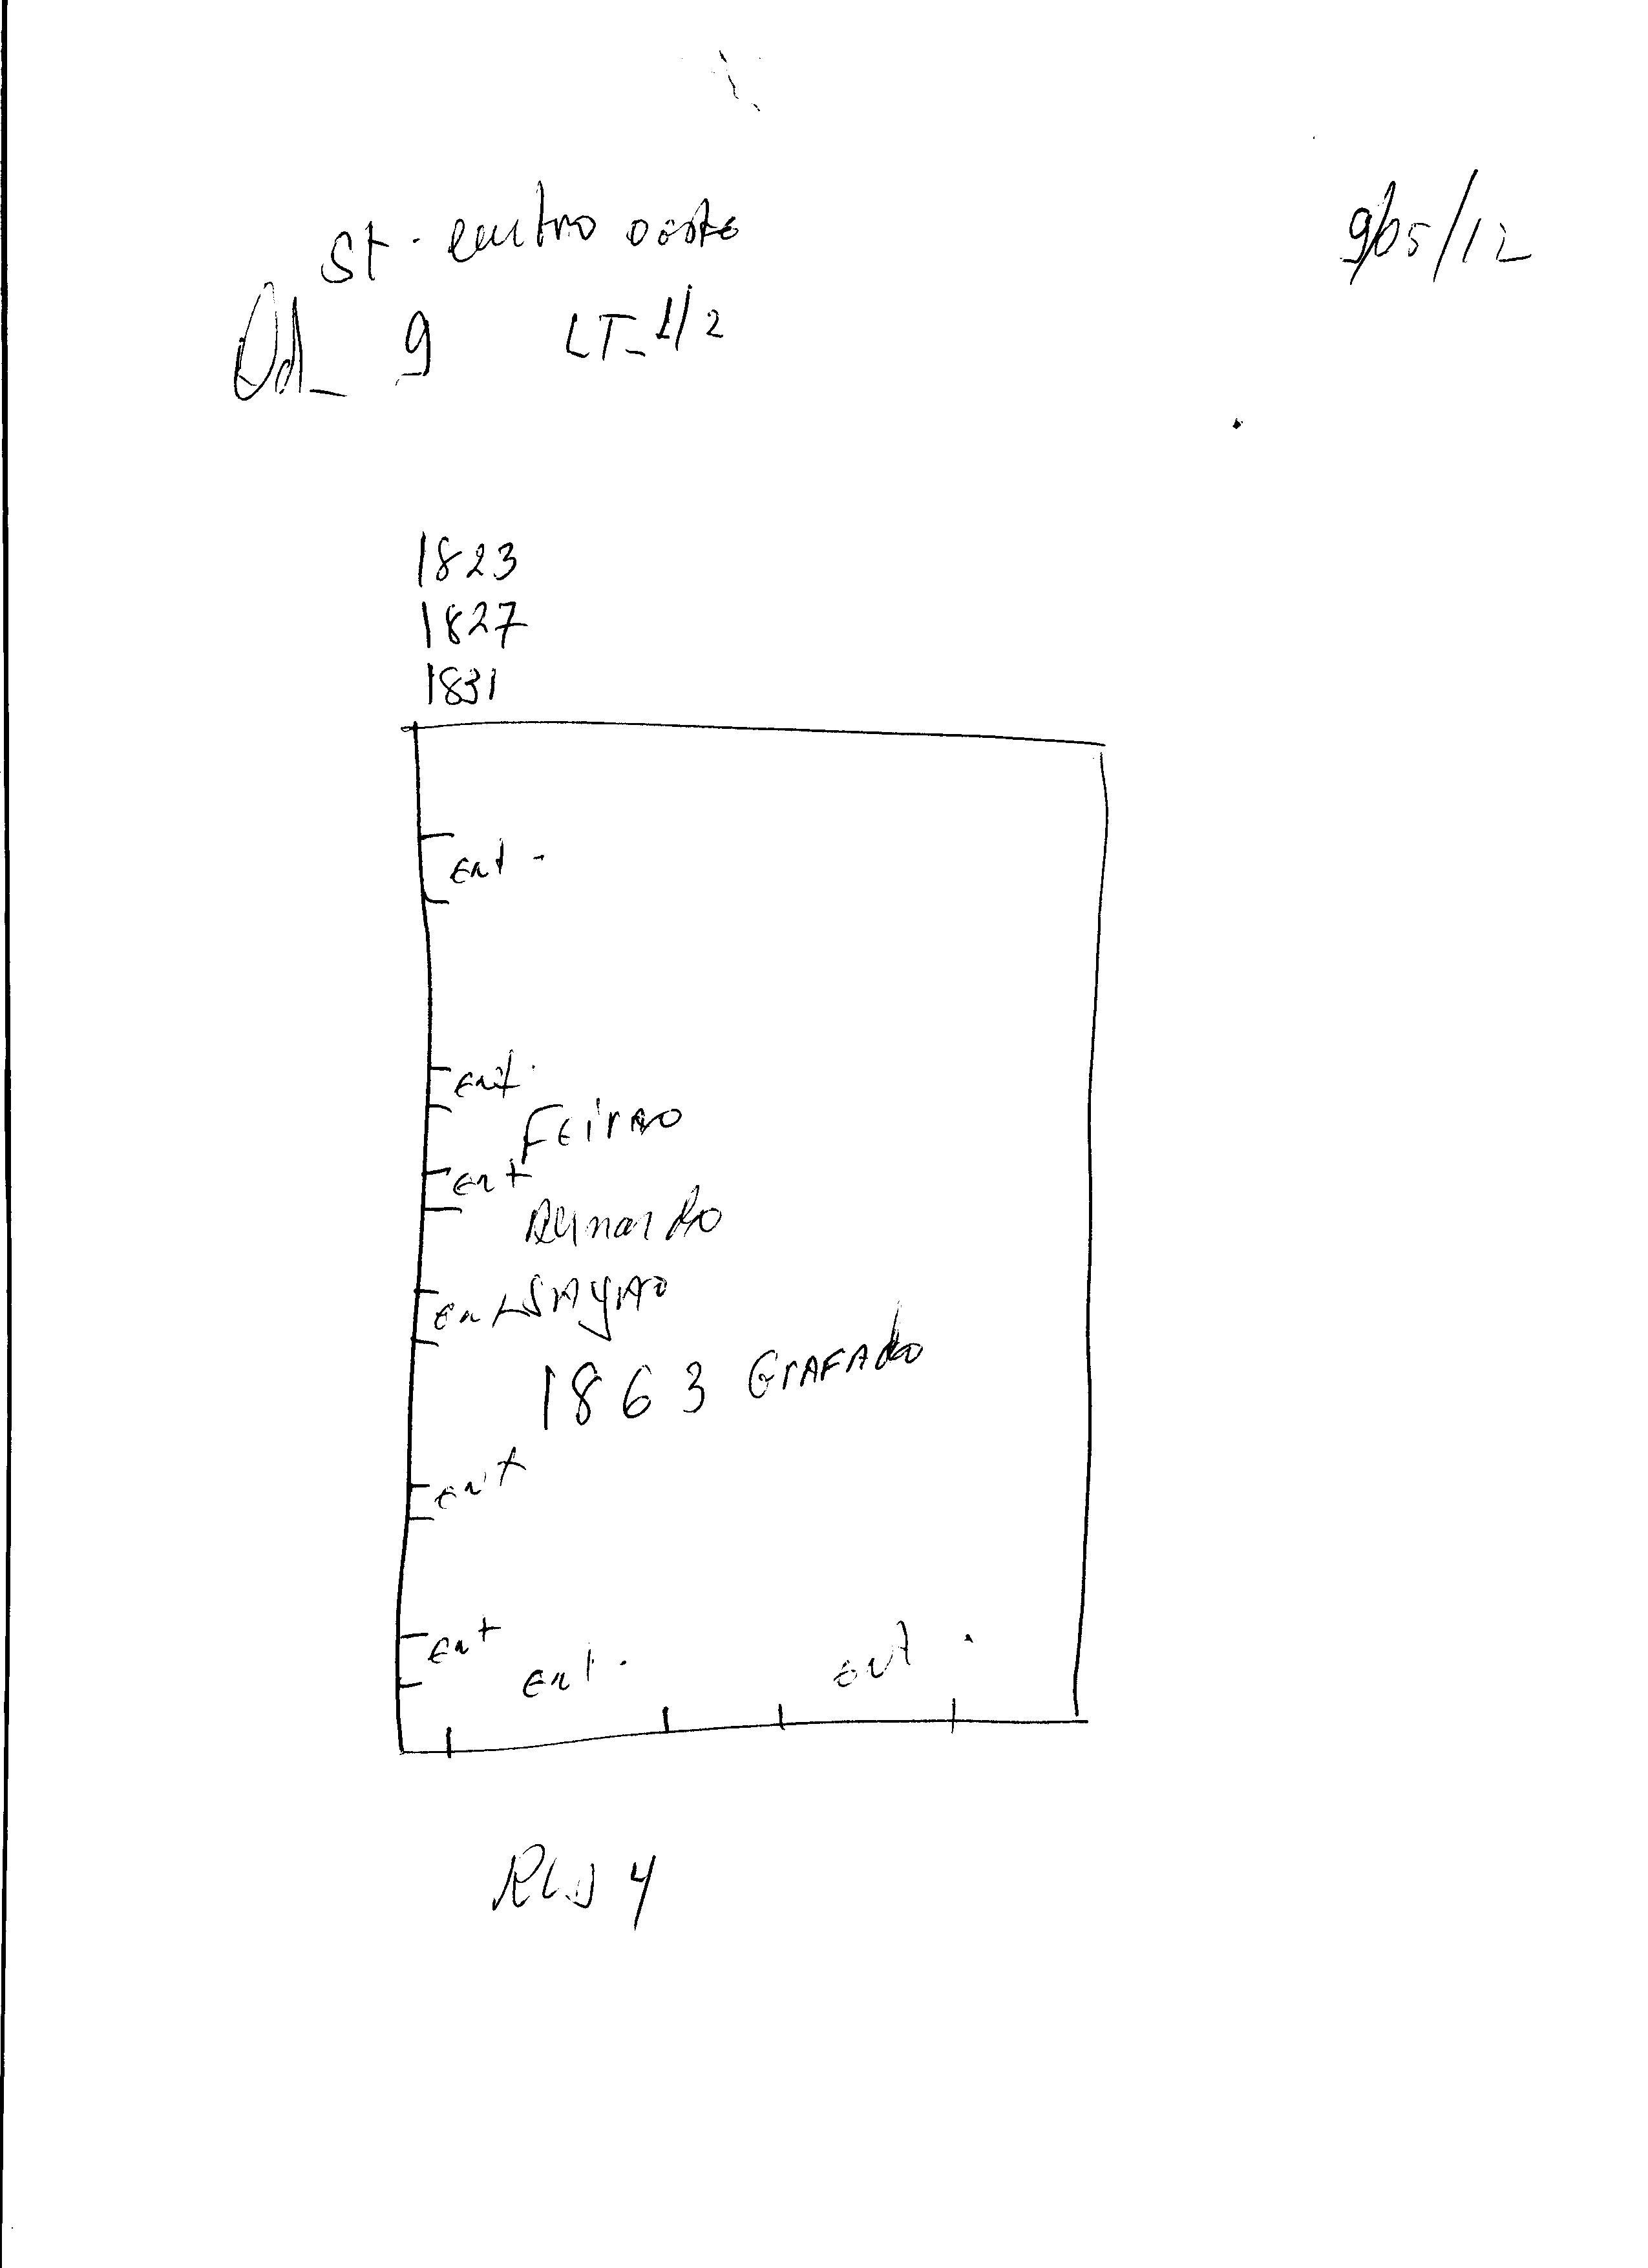 9/05/12
St. centro oeste
Qd_ 9 LT_ 1/2
1823
1827
1831
Ent.
Ent.
FEirAO
Ent
Bernardo
Ent SAYAO
1863 GrAFAdo
Ent
Ent
Ent.
Ent.
RUA 4